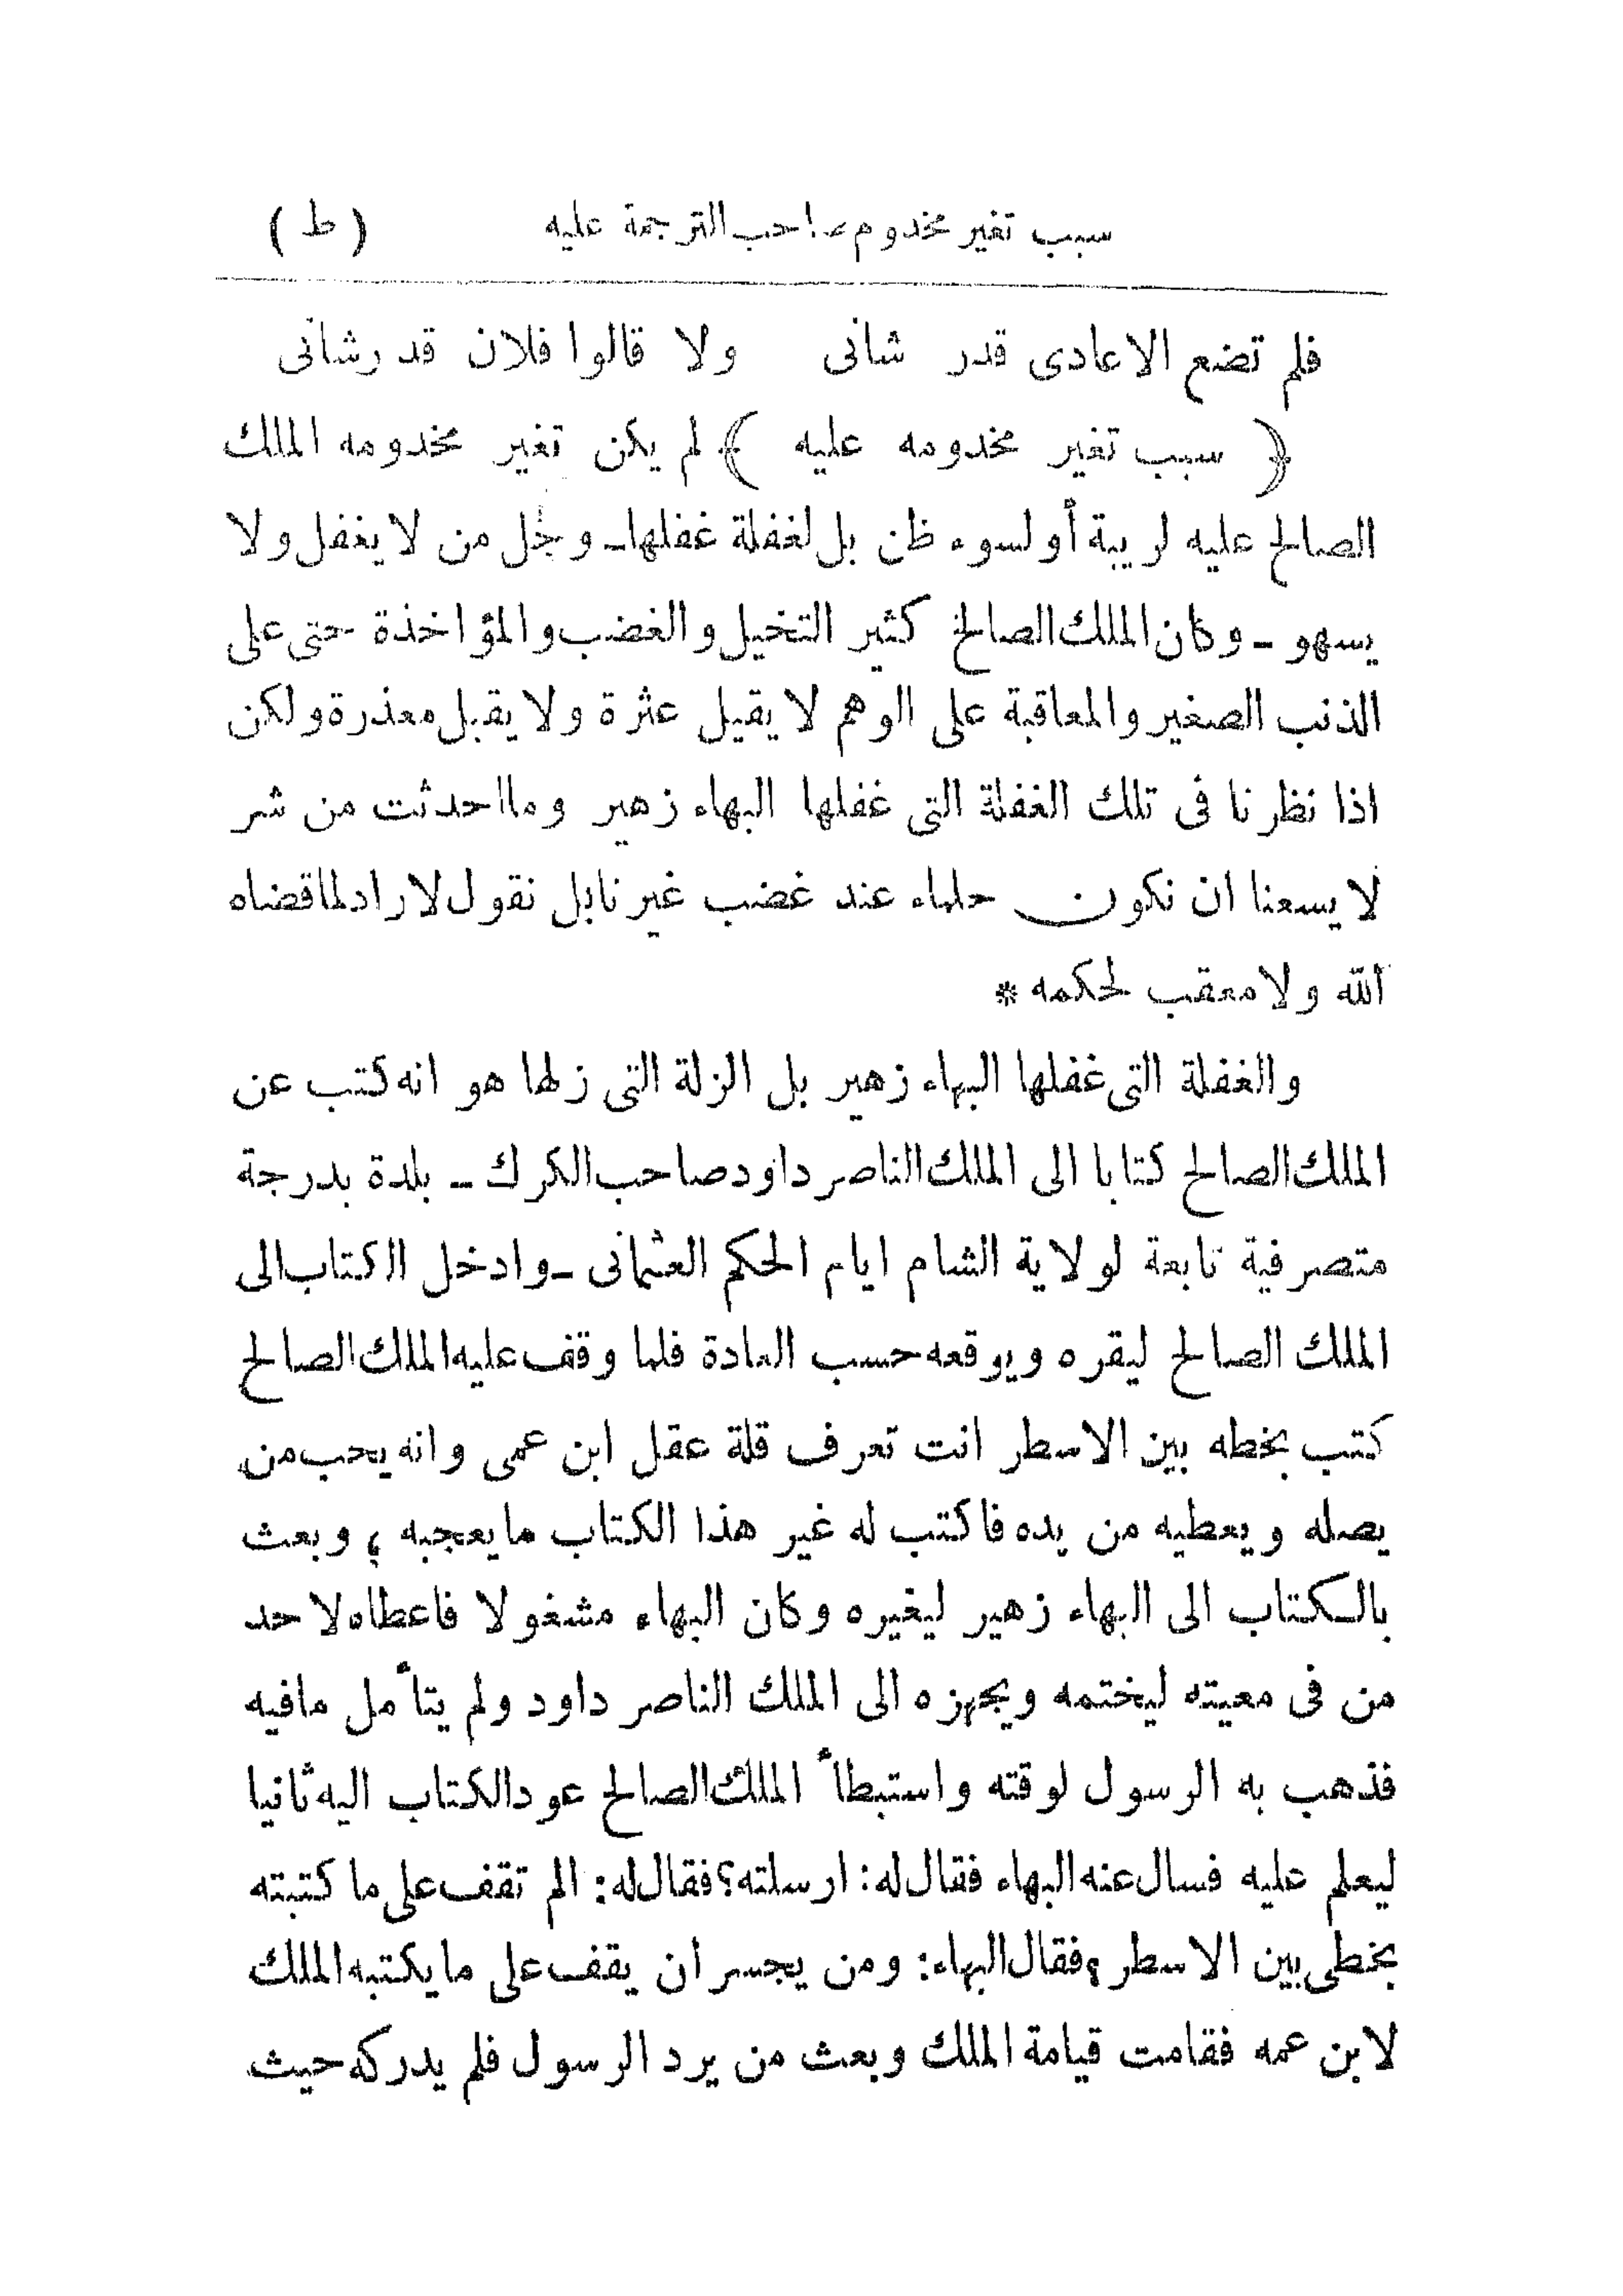 سبب تغير مخدوم صاحب الترجمة عليه (ط)
فلم تضع الاعادى قدر شانى ولا قالوا فلان قد رشانى
﴿ سبب تغير مخدومه عليه ﴾ لم يكن تغير مخدومه الملك
الصالح عليه لريبة أو لسوء ظن بل لغفلة غفلها ــ وجُل من لا يغفل ولا
يسهو ــ وكان الملك الصالح كثير التخيل والغضب والمؤاخذة حتى على
الذنب الصغير والمعاقبة على الوهم لا يقيل عثرة ولا يقبل معذرة ولكن
اذا نظرنا فى تلك الغفلة التى غفلها البهاء زهير وما احدثت من شر
لا يسعنا ان نكون حلماء عند غضب غيرنا بل نقول لا راد لما قضاه
الله ولا معقب لحكمه *
والغفلة التى غفلها البهاء زهير بل الزلة التى زلها هو انه كتب عن
الملك الصالح كتابا الى الملك الناصر داود صاحب الكرك ــ بلدة بدرجة
متصرفية تابعة لولاية الشام ايام الحكم العثمانى ــ وادخل الكتاب الى
الملك الصالح ليقره ويوقعه حسب العادة فلما وقف عليه الملك الصالح
كتب بخطه بين الاسطر انت تعرف قلة عقل ابن عمى وانه يحب من
يصله ويعطيه من يده فاكتب له غير هذا الكتاب ما يعجبه ؛ وبعث
بالكتاب الى البهاء زهير ليغيره وكان البهاء مشغولا فاعطاه لاحد
من فى معيته ليختمه ويجهزه الى الملك الناصر داود ولم يتأمل ما فيه
فذهب به الرسول لوقته واستبطأ الملك الصالح عود الكتاب اليه ثانيا
ليعلم عليه فسال عنه البهاء فقال له: ارسلته؟ فقال له: الم تقف على ما كتبته
بخطى بين الاسطر ؟ فقال البهاء: ومن يجسر ان يقف على ما يكتبه الملك
لابن عمه فقامت قيامة الملك وبعث من يرد الرسول فلم يدركه حيث